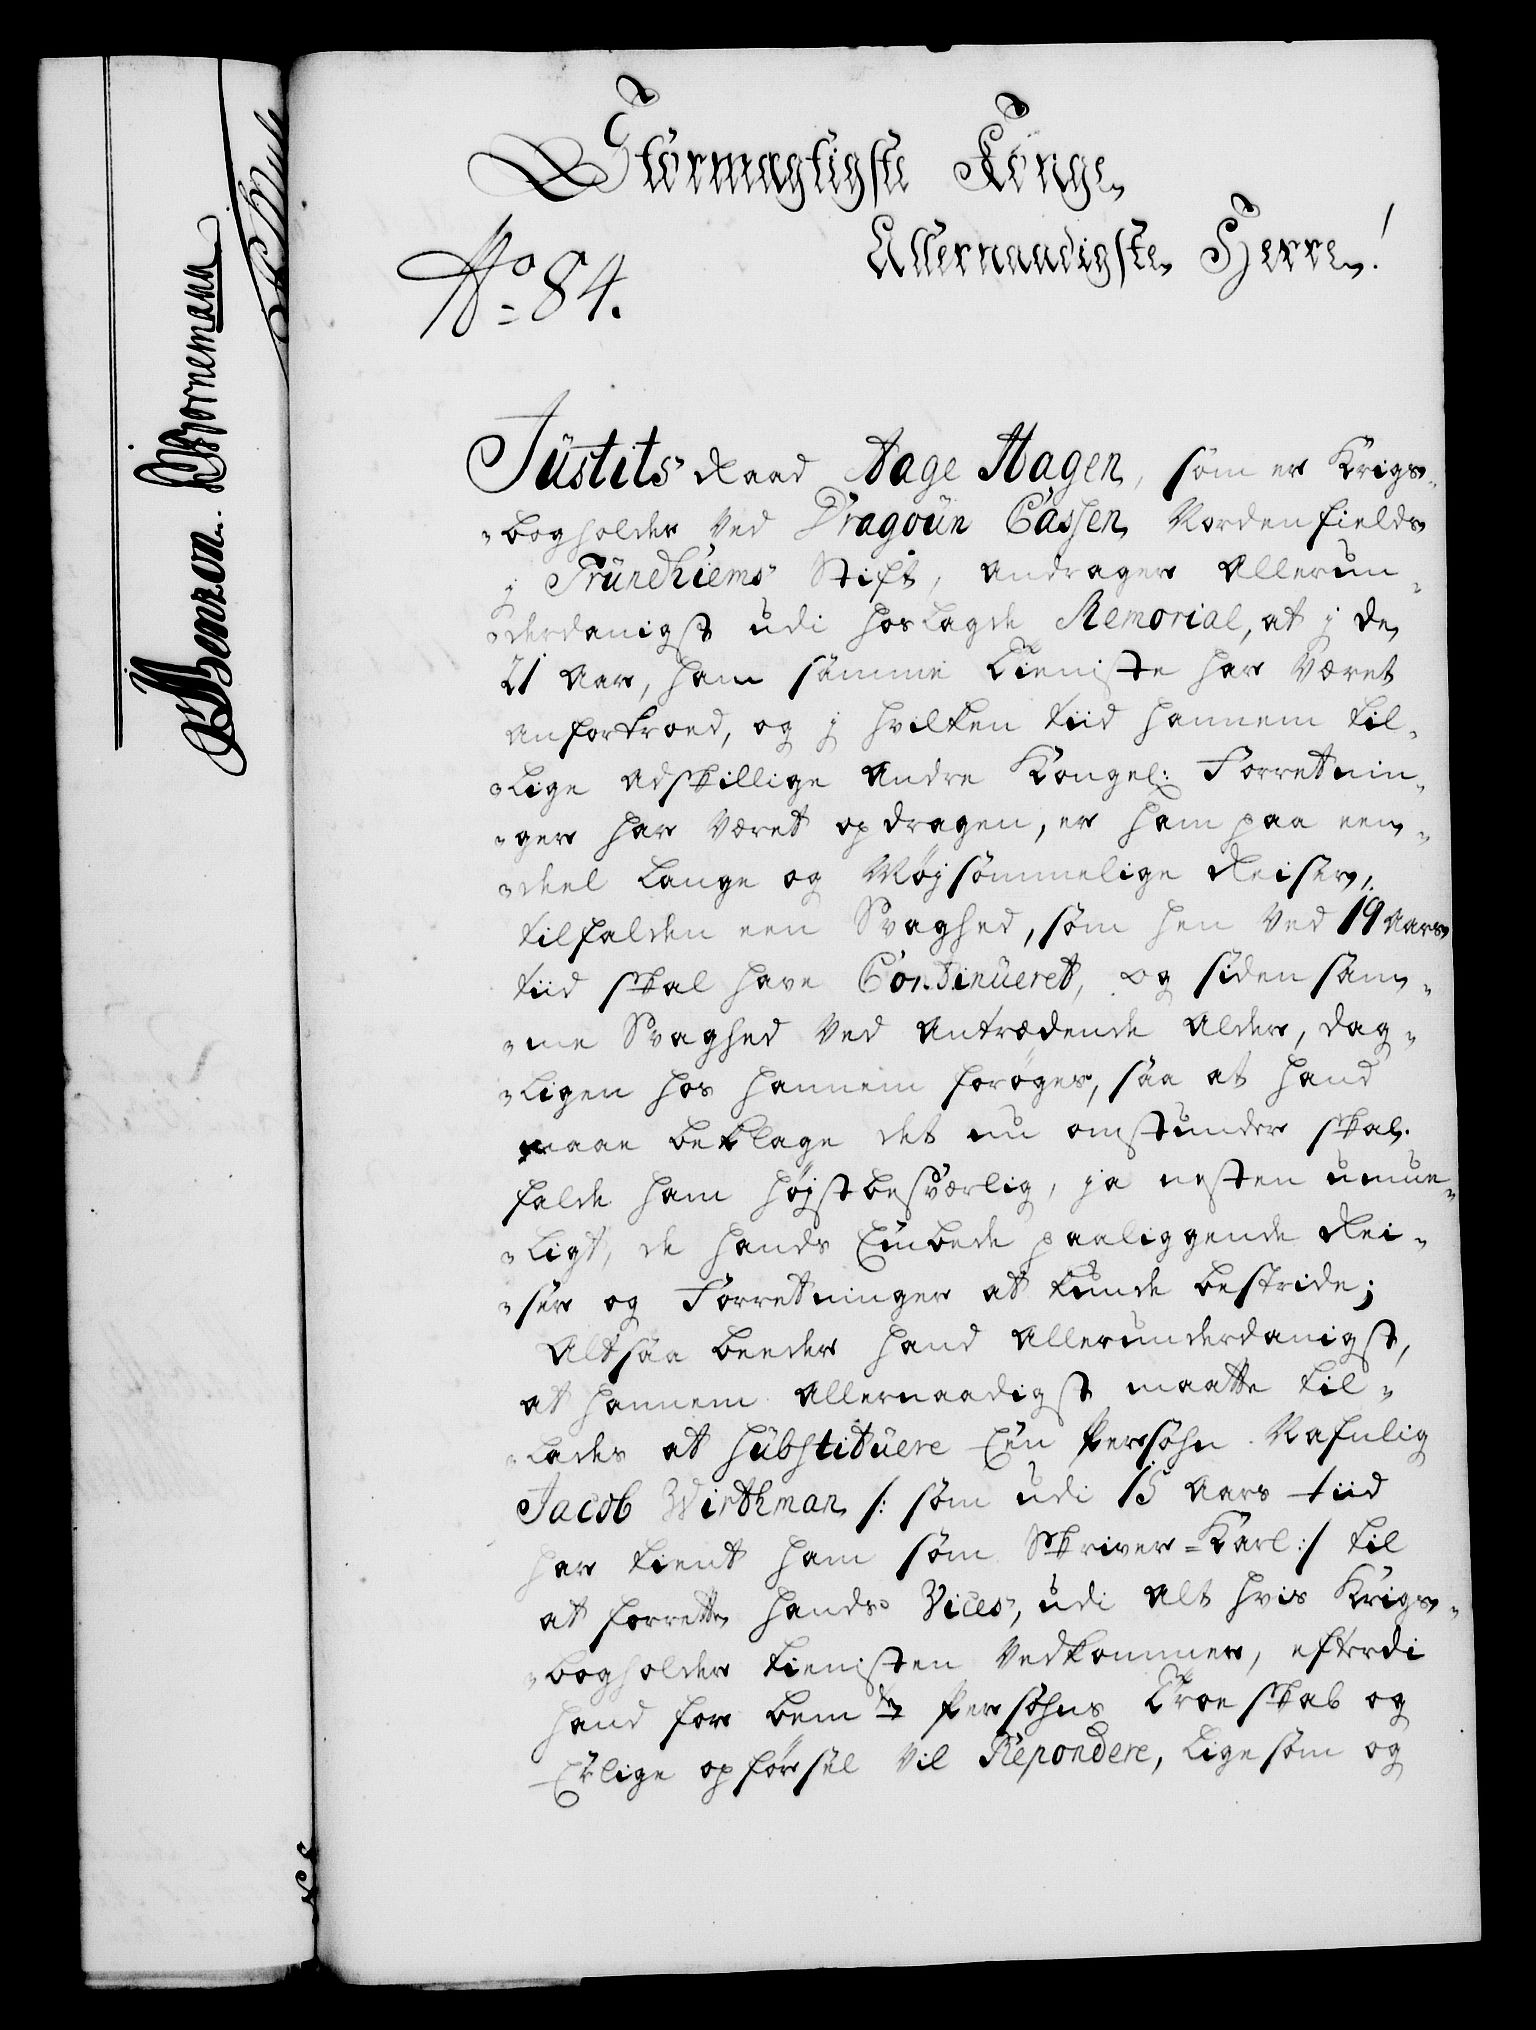 Stormagtigste Konge,
Allernaadigste Herre!
No 84.
Justits Raad Aage Hagen, som er Krigs-
-bogholder ved Dragoun Cassen Nordenfields
j Trundhiems Stift, andrager allerun-
-derdanigst udi hoslagde Memorial, at j de
21 Aar, ham samme tieniste har været
anfortroed, og j hvilken tiid hannem til-
-lige adskillige andre Kongel: Forretnin-
-ger har været opdragen, er ham paa een-
-deel lange og Møjsommelige Reiser,
tilfalden een Svaghed, som hen ved 19 Aars
tiid skal have Continueret, og siden sam-
-me Svaghed ved antrædende alder, dag-
-ligen hos hannem forøges, saa at hand
maae beklage det nu omstunder skal
falde ham højstbesværlig, ja nesten umue-
-ligt, de hands Embede paaliggende Rei-
-ser og Forretninger at kunde bestride;
Altsaa beeder hand allerunderdanigst,
at hannem allernaadigst maatte til-
-lades at substituere Een Persohn Nafnlig
Jacob Wirthman /: som udi 15 Aars tiid
har tient ham som Skriver-Karl :/ til
at forrette hands Vices, udi alt hvis Krigs-
-bogholder tienisten vedkommer, efterdi
hand for bemte Persohns Troeskab og
Erlige opførsel vil Repondere, ligesom og
Benzon. Bornemann